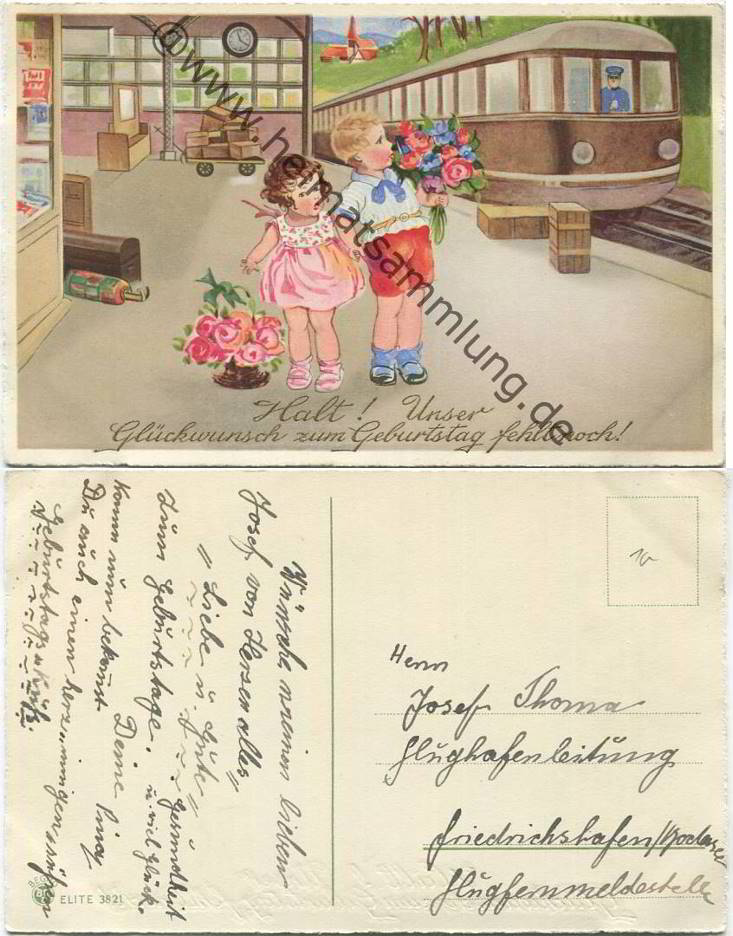 @www.heimatsammlung.de
Halt! Unser
Glückwunsch zum Geburtstag fehlt noch!
Wünsche meinem lieben
Josef von Herzen alles
"Liebe u. Gute"
zum Geburtstage. Gesundheit
u. viel Glück.
Kann nun bekommst
Du auch einen herz. innigen süßen
Geburtstagskuß.
Deine
10
Herrn
Josef Thoma
Flughafenleitung
Friedrichshafen/Bodensee
Flugfernmeldestelle
ELITE 3821